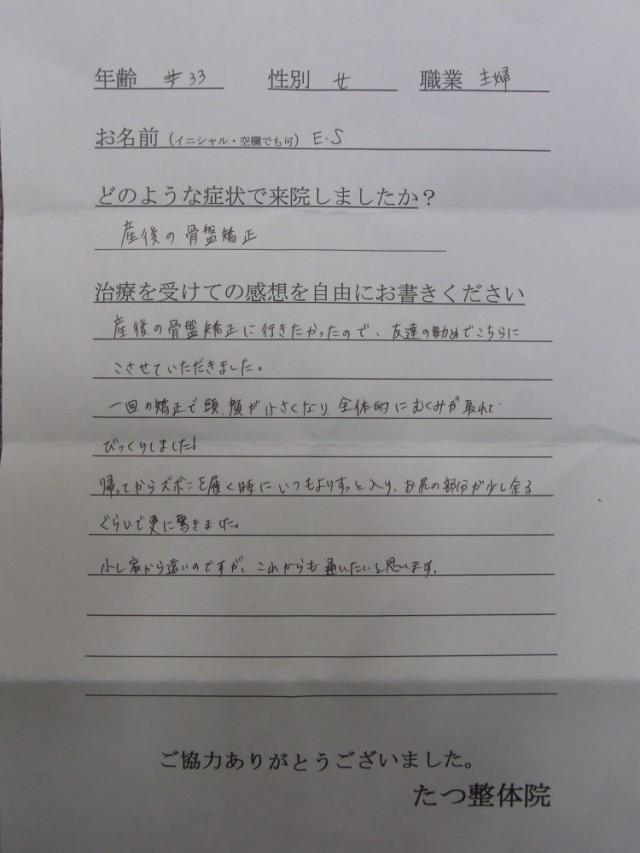 年齢 33 性別 女 職業 主婦
お名前（イニシャル・空欄でも可） E.S
どのような症状で来院しましたか？
産後の骨盤矯正
治療を受けての感想を自由にお書きください
産後の骨盤矯正に行きたかったので、友達の勧めでこちらに
こさせていただきました。
一回の矯正で頭、顔が小さくなり 全体的にむくみが取れて
びっくりしました!
帰ってからズボンを履く時にいつもよりすっと入り、お尻の部分が少し余る
ぐらいで更に驚きました。
少し家から遠いのですが、これからも通いたいと思います。
ご協力ありがとうございました。
たつ整体院